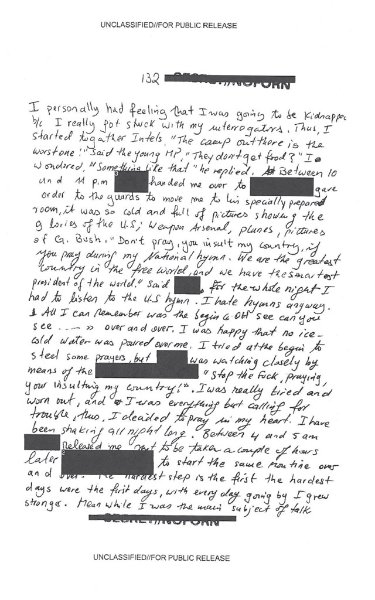 UNCLASSIFIED//FOR PUBLIC RELEASE
132 SECRET//NOFORN
I personally had feeling that I was going to be kidnapped
b/c I really got stuck with my interrogators. Thus, I
started to gather Intels. "The camp out there is the
worst one!" Said the young MP. "They don't get food?" I
wondered, "Something like that" he replied. Between 10
and 11 p.m handed me over to gave
order to the guards to move me to his specially prepared
room, it was so cold and full of pictures showing the
glories of the U.S; Weapon Arsenal, planes, pictures
of G. Bush. "Don't pray, you insult my country, if
you pray during my National hymn. We are the greatest
country in the free world, and we have the smartest
president of the world." Said . for the whole night I
had to listen to the U.S hymn. I hate hymns anyway.
All I can remember was the begin "Oh! see can you
see ....." over and over. I was happy that no ice-
cold water was poured over me. I tried at the begin to
steel some prayers, but was watching closely by
means of the "Stop the Fuck, praying,
you insulting my country!". I was really tired and
worn out, and I was everything but calling for
trouble, thus, I decided to pray in my heart. I have
been shaking all night long. Between 4 and 5 am
released me, to be taken a couple of hours
later to start the same routine over
and over. The hardest step is the first the hardest
days were the first days, with every day going by I grew
stronge. Mean while I was the main subject of talk
SECRET//NOFORN
UNCLASSIFIED//FOR PUBLIC RELEASE